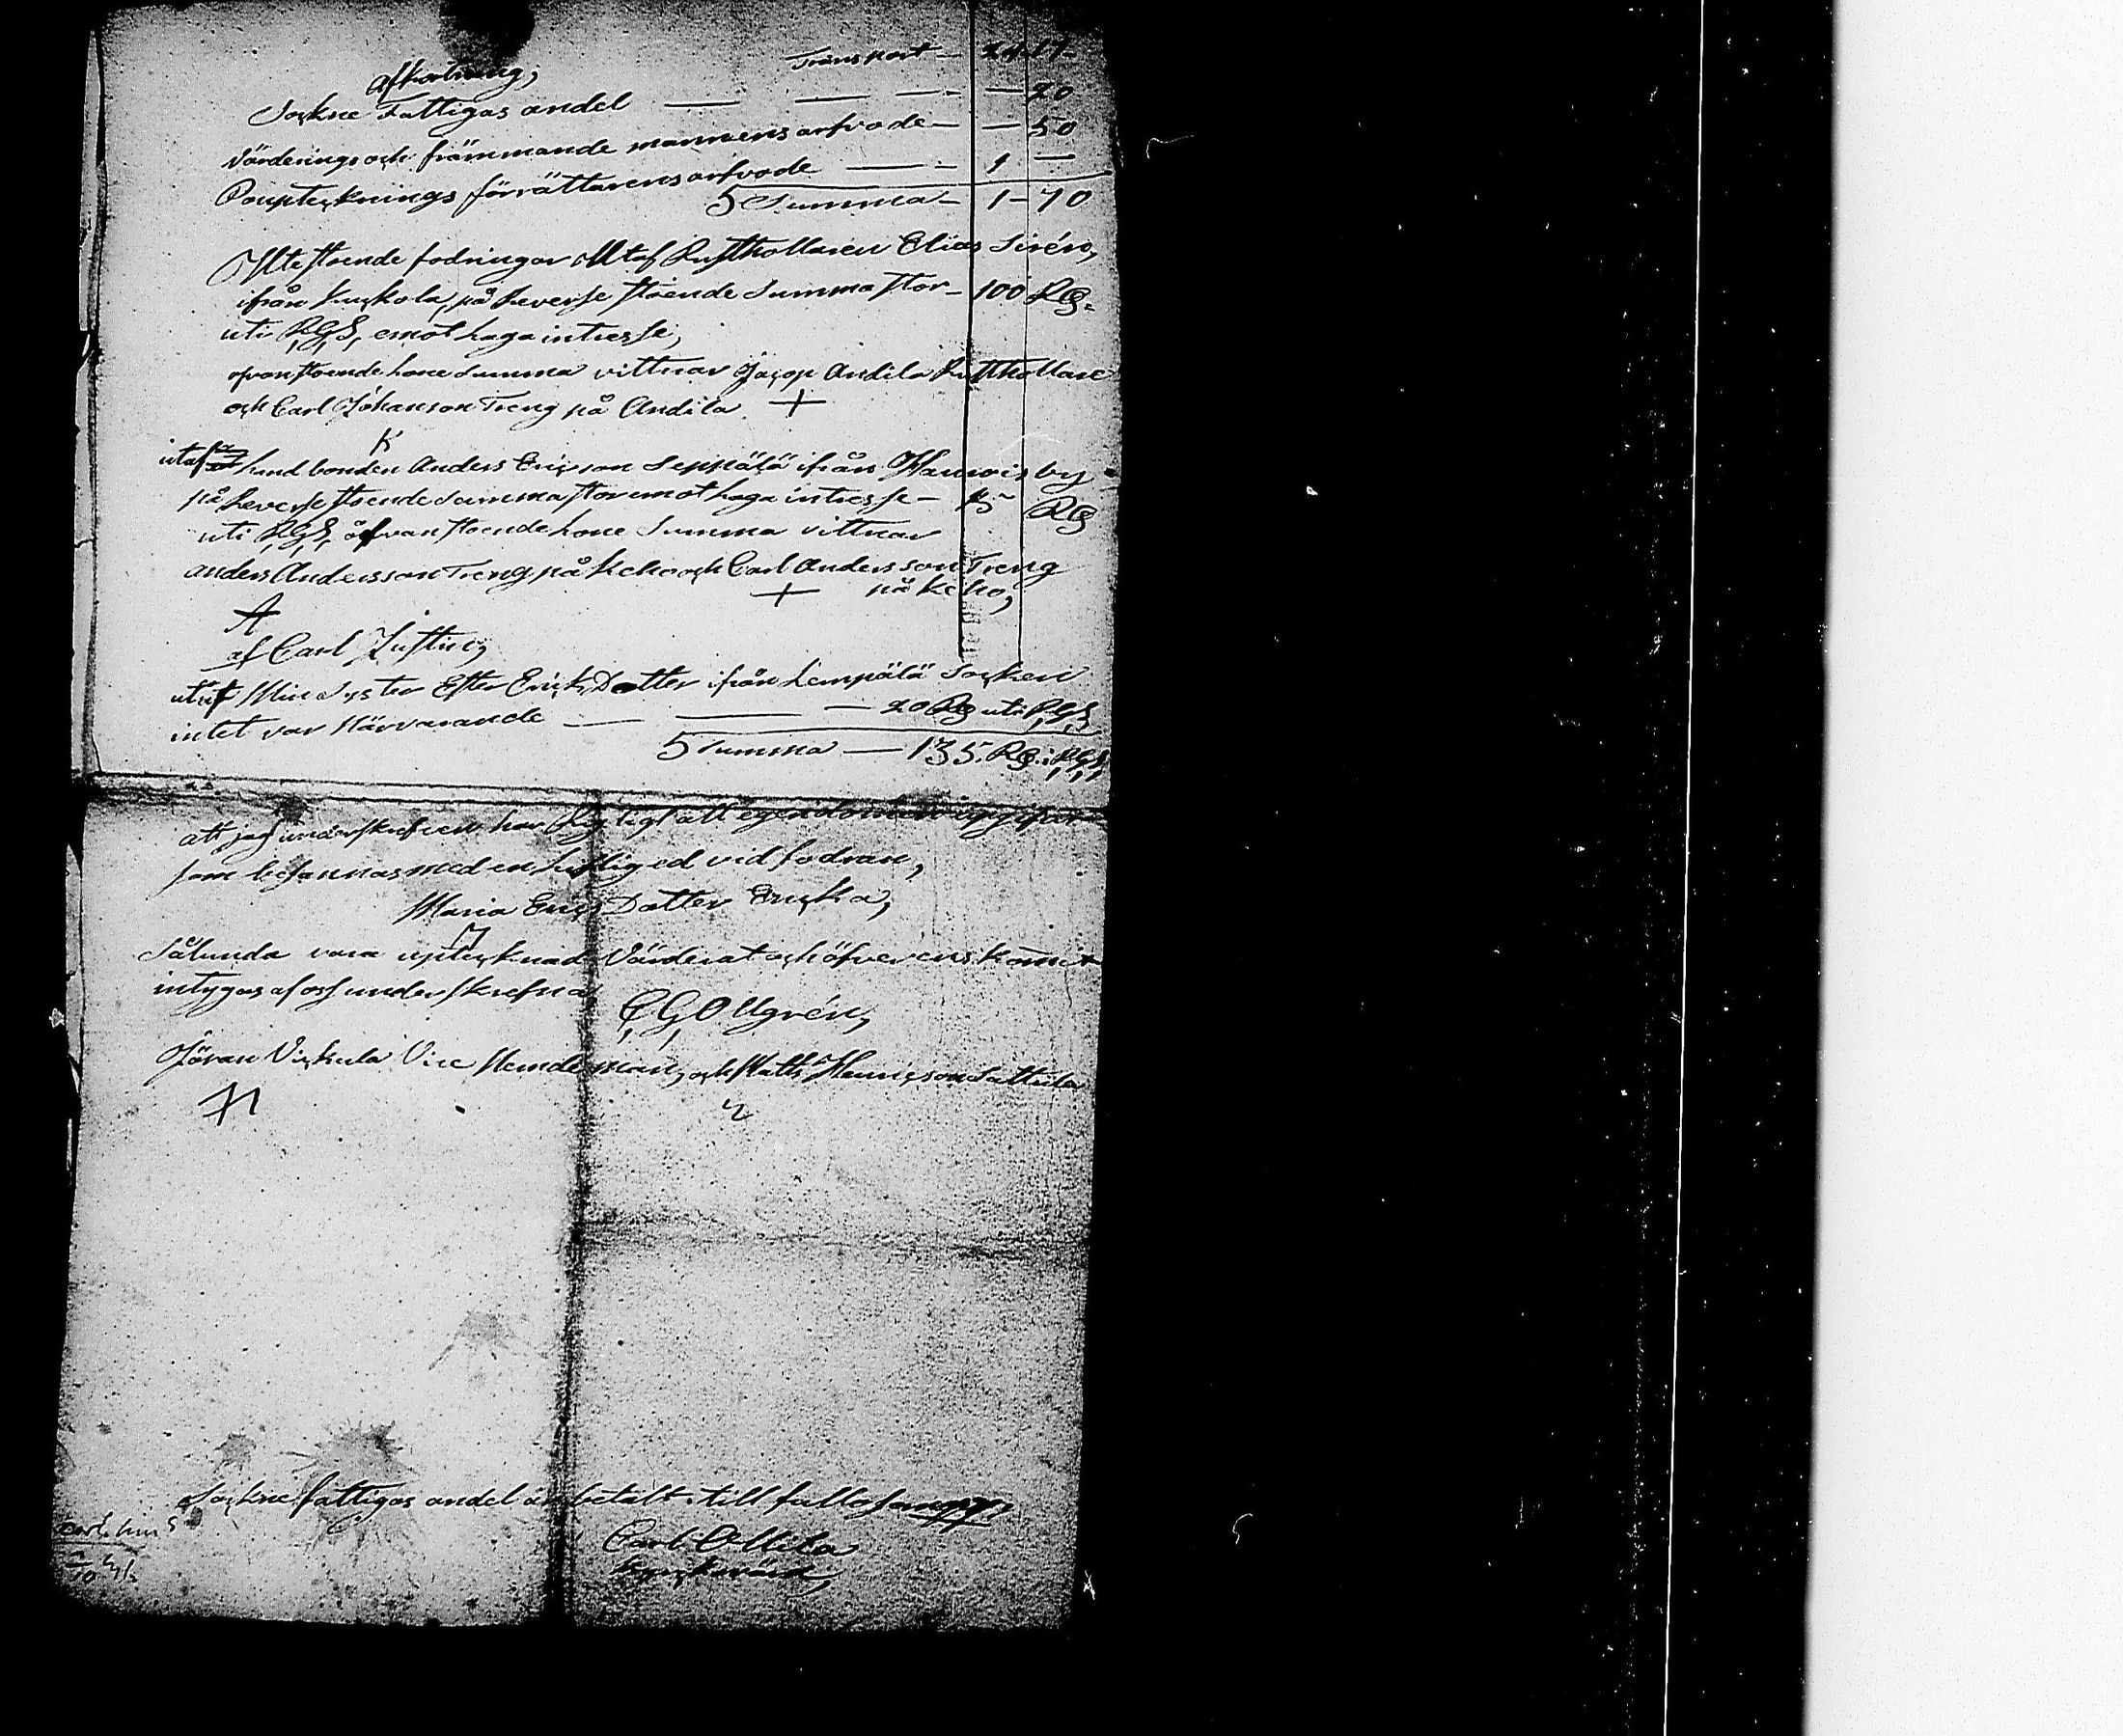 Transport — 24 17
Afkortning,
Sockne Fattigas andel — — — — 20
Värderings och främmande mannens arfvode — — 50
Bouptecknings förrättarens arfvode — 1 —
Summa — 1 — 70
Utestående fodringar Utaf Rusthollaren Elias Sirén,
ifrån på Reverse stående Summa stor — 100 RG
uti R,G,S, emot laga intresse,
ofvanstoende lone Summa vittnar Jacop Andila Rusthollare
och Carl Johanson Treng på Andila +
K
utaf land bonden Anders Ericson Seppälä ifrån by
på Reverse stoende Summa stor emot laga intresse — 15 RG
uti R,G,S, öfvanstoende lone Summa vittnar
anders Andersson Treng på Keho och Carl Andersson Treng
+ på Keho,
A
af Carl
utaf Min Syster Ester Erick Dotter ifrån Lempälä Socken
intet var Närvarande — — — 20 RG uti R,G,S
Summa — 135. RG. i R,G,S,
att jag underskrefven har Rigtigt all egendomen uppgifvit
som befannas med en Liflig ed vid fodran,
Maria Erics Dotter
Sålunda vara upptecknad Värderat och öfverenskommit
intygas af oss underskrefna
C,G, Ollgrén,
Jöran Vickula Vice Nemdeman, och Matts
Sockne fattigas andel är betalt till fallo
Carl Ollila
kyrckovärd,